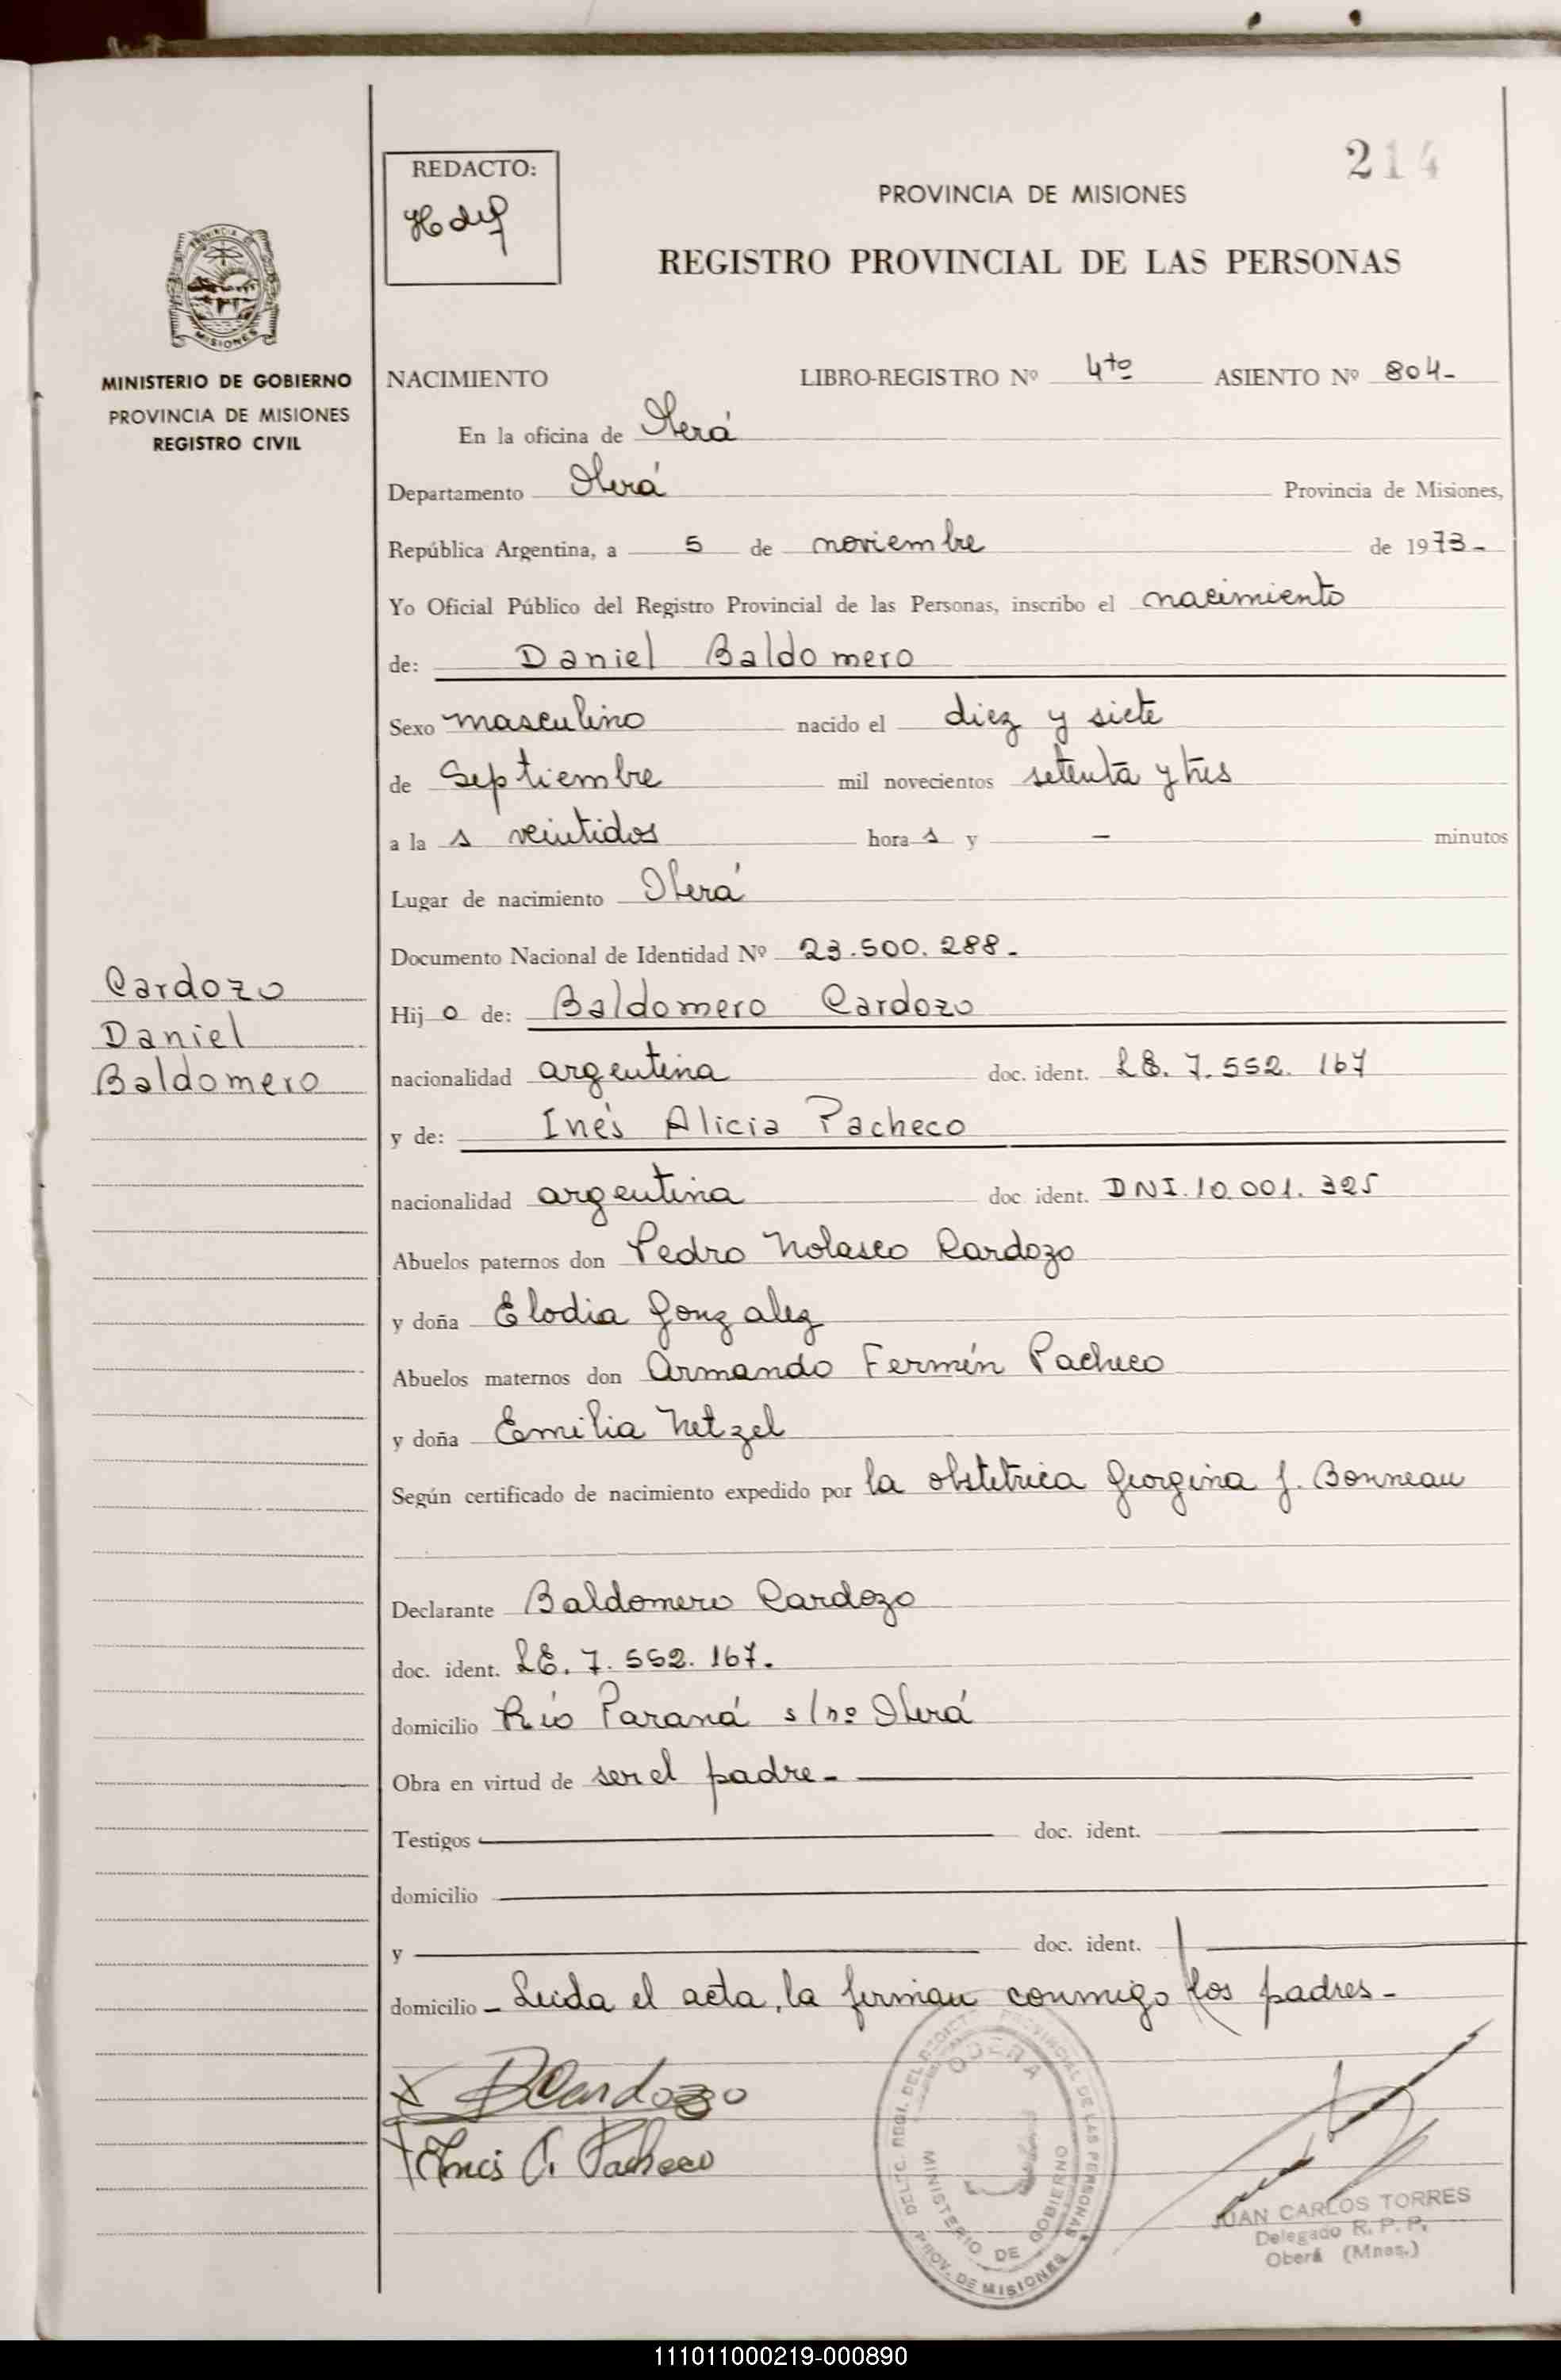 214
REDACTO:
PROVINCIA DE MISIONES
REGISTRO PROVINCIAL DE LAS PERSONAS
MINISTERIO DE GOBIERNO
PROVINCIA DE MISIONES
REGISTRO CIVIL
NACIMIENTO LIBRO-REGISTRO Nº 4to ASIENTO Nº 804-
En la oficina de Oberá
Departamento Oberá Provincia de Misiones,
República Argentina, a 5 de noviembre de 1973-
Yo Oficial Público del Registro Provincial de las Personas, inscribo el nacimiento
de: Daniel Baldomero
Sexo masculino nacido el diez y siete
de Septiembre mil novecientos setenta y tres
a la s veintidos hora s y - minutos
Lugar de nacimiento Oberá
Documento Nacional de Identidad Nº 23.500.288-
Cardozo
Daniel
Baldomero
Hij o de: Baldomero Cardozo
nacionalidad argentina doc. ident. LE. 7.552.167
y de: Inés Alicia Pacheco
nacionalidad argentina doc ident. DNI.10.001.325
Abuelos paternos don Pedro Nolasco Cardozo
y doña Elodia Gonzalez
Abuelos maternos don Armando Fermín Pacheco
y doña Emilia Netzel
Según certificado de nacimiento expedido por la obstetrica Georgina J. Bonneau
Declarante Baldomero Cardozo
doc. ident. LE. 7.552.167.
domicilio Río Paraná s/nº Oberá
Obra en virtud de ser el padre-
Testigos doc. ident.
domicilio
y doc. ident.
domicilio - Leida el acta, la firman conmigo los padres-
B Cardozo
Ines A. Pacheco
OBERA
MINISTERIO DE GOBIERNO
PROVINCIAL DE LAS PERSONAS
PROV. DE MISIONES
JUAN CARLOS TORRES
Delegado R. P. P.
Oberá (Mnes.)
111011000219-000890